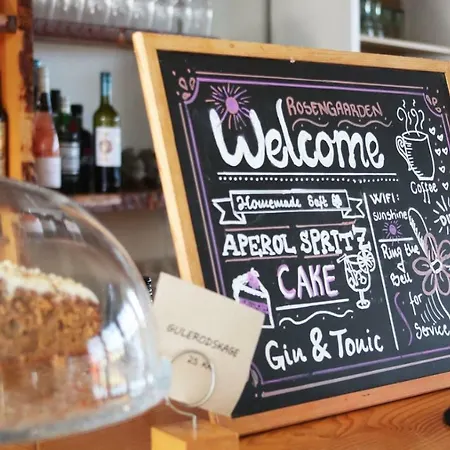 ROSENGAARDEN
Welcome
Homemade Saft
APEROL SPRITZ
CAKE
Gin & Tonic
Coffee
WIFI:
sunshine
Ring the
Bell
for
Service
GULERODSKAGE
25 kr